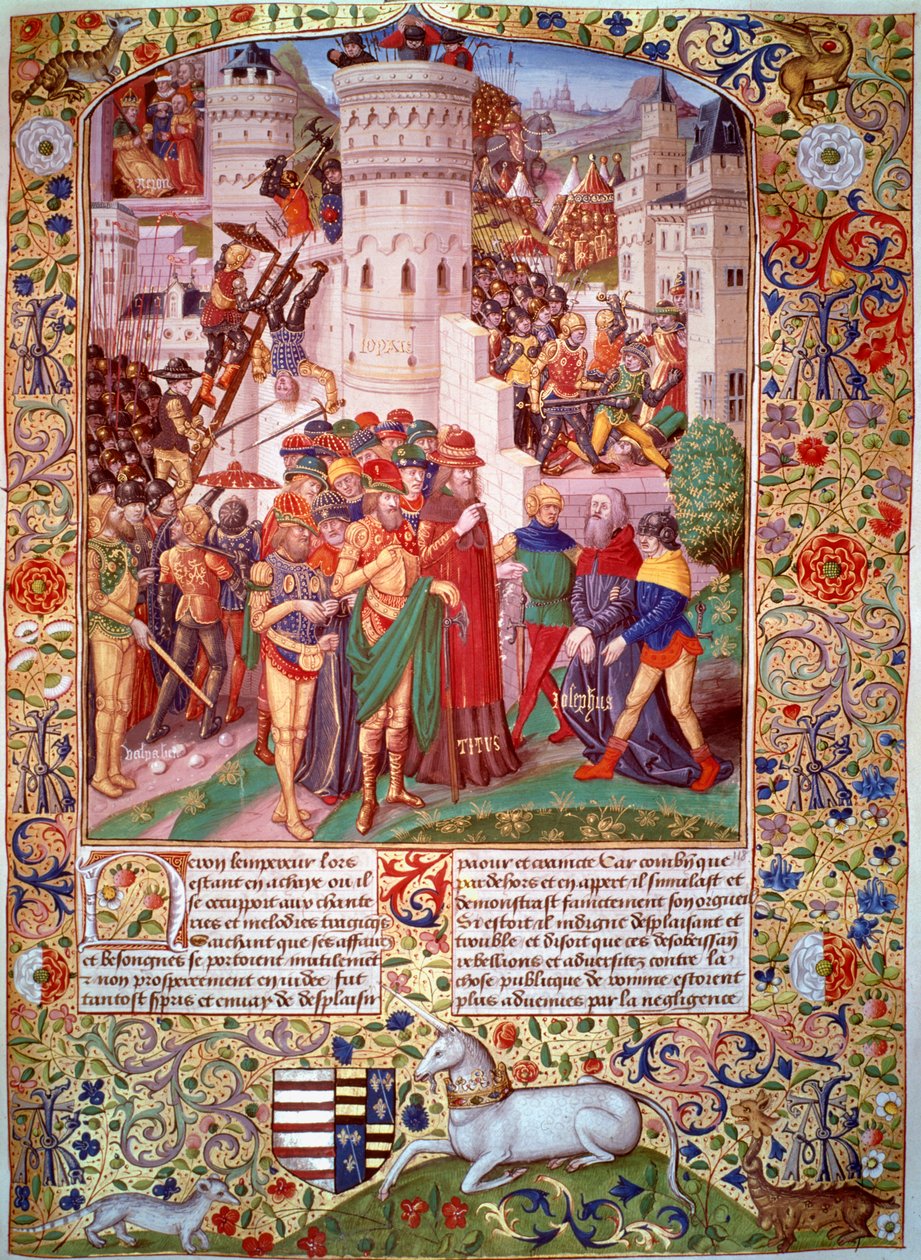 Neron
TITUS
Iosephus
Neron lempereur lors
estant en achaye ou il
se occupoit aux chante
ries et melodies tragiqs
Sachant que ses affairs
et besongnes se portoient inutilement
& non prosperement en iudee fut
tantost espris et enuay de desplaisir
paour et craincte Car combyque
par dehors et en appert il simulast et
demonstrast sainctement son orgueil
Si estoit il indigne desplaisant et
trouble et disoit que ces desobeissan
rebellions et aduersitez contre la
chose publique de romme estoient
plus aduenues par la negligence